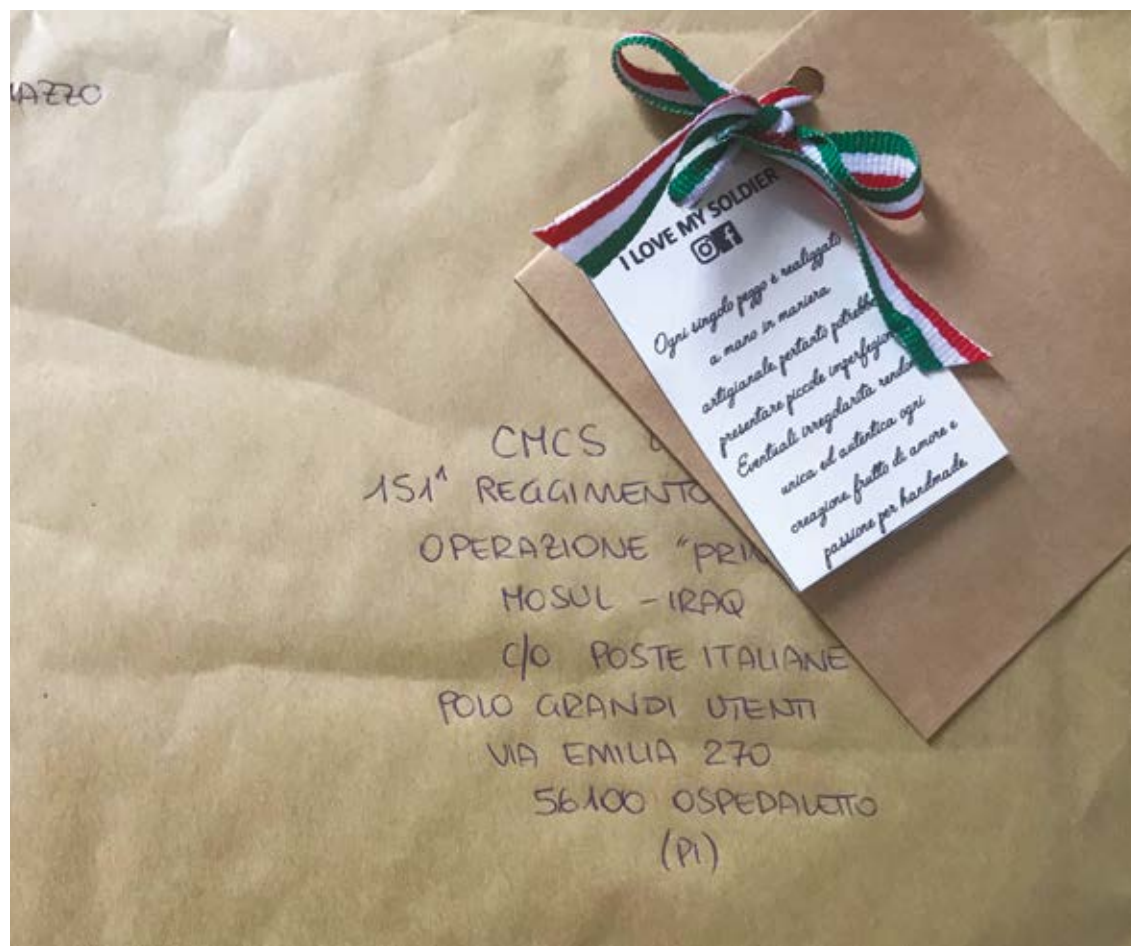 I LOVE MY SOLDIER
Ogni singolo pezzo è realizzato
a mano in maniera
artigianale, pertanto
presentare piccole
Eventuali irregolarità
unica ed autentica ogni
creazione, frutto di amore e
passione per handmade
CMCS
151° REGGIMENTO
OPERAZIONE "
MOSUL - IRAQ
C/O POSTE ITALIANE
POLO GRANDI UTENTI
VIA EMILIA 270
56100 OSPEDALETTO
(PI)